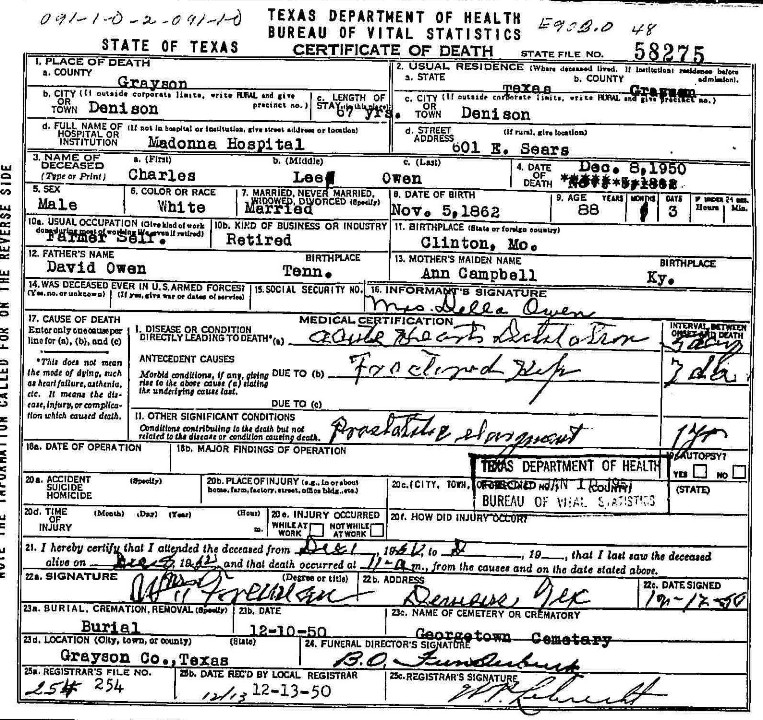 091-10-2-091-10
TEXAS DEPARTMENT OF HEALTH
BUREAU OF VITAL STATISTICS
48
STATE OF TEXAS
CERTIFICATE OF DEATH
STATE FILE NO. 58275
1. PLACE OF DEATH
a. COUNTY
Grayson
2. USUAL RESIDENCE (Where deceased lived. If institution: residence before admission).
a. STATE
Texas
b. COUNTY
Grayson
b. CITY (If outside corporate limits, write RURAL and give precinct no.)
OR
TOWN Denison
c. LENGTH OF
STAY
67 yrs.
c. CITY (If outside corporate limits, write RURAL and give precinct no.)
OR
TOWN Denison
d. FULL NAME OF (If not in hospital or institution, give street address or location)
HOSPITAL OR
INSTITUTION Madonna Hospital
d. STREET (If rural, give location)
ADDRESS
601 E. Sears
3. NAME OF
DECEASED
(Type or Print)
a. (First)
Charles
b. (Middle)
Lee
c. (Last)
Owen
4. DATE
OF
DEATH
Dec. 8, 1950
5. SEX
Male
6. COLOR OR RACE
White
7. MARRIED, NEVER MARRIED,
WIDOWED, DIVORCED (Specify)
Married
8. DATE OF BIRTH
Nov. 5, 1862
9. AGE YEARS MONTHS DAYS
88 1 3
IF UNDER 24 HRS.
Hours Min.
10a. USUAL OCCUPATION (Give kind of work
done during most of working life, even if retired)
Farmer Self.
10b. KIND OF BUSINESS OR INDUSTRY
Retired
11. BIRTHPLACE (State or foreign country)
Clinton, Mo.
12. FATHER'S NAME BIRTHPLACE
David Owen Tenn.
13. MOTHER'S MAIDEN NAME BIRTHPLACE
Ann Campbell Ky.
14. WAS DECEASED EVER IN U.S. ARMED FORCES?
(Yes, no, or unknown) (If yes, give war or dates of service)
15. SOCIAL SECURITY NO.
16. INFORMANT'S SIGNATURE
Mrs. Della Owen
17. CAUSE OF DEATH
Enter only one cause per
line for (a), (b), and (c)
*This does not mean
the mode of dying, such
as heart failure, asthenia,
etc. It means the dis-
ease, injury, or complica-
tion which caused death.
MEDICAL CERTIFICATION
INTERVAL BETWEEN
ONSET AND DEATH
I. DISEASE OR CONDITION
DIRECTLY LEADING TO DEATH*(a) acute Heart Dilatation
ANTECEDENT CAUSES
Morbid conditions, if any, giving
rise to the above cause (a) stating
the underlying cause last.
DUE TO (b) Fractured Hip
DUE TO (c)
11. OTHER SIGNIFICANT CONDITIONS
Conditions contributing to the death but not
related to the disease or condition causing death.
1 yr
18a. DATE OF OPERATION
18b. MAJOR FINDINGS OF OPERATION
19. AUTOPSY?
YES NO
TEXAS DEPARTMENT OF HEALTH
BUREAU OF VITAL STATISTICS
20a. ACCIDENT (Specify)
SUICIDE
HOMICIDE
20b. PLACE OF INJURY (e.g., in or about
home, farm, factory, street, office bldg., etc.)
20c. (CITY, TOWN,
(STATE)
20d. TIME (Month) (Day) (Year) (Hour)
OF
INJURY
m.
20e. INJURY OCCURRED
WHILE AT
WORK
NOT WHILE
AT WORK
20f. HOW DID INJURY OCCUR?
21. I hereby certify that I attended the deceased from Dec 1, 19 to , 19 , that I last saw the deceased
alive on , 19 , and that death occurred at m., from the causes and on the date stated above.
22a. SIGNATURE (Degree or title)
22b. ADDRESS
Denison, Tex
22c. DATE SIGNED
12-12-50
23a. BURIAL, CREMATION, REMOVAL (Specify)
Burial
23b. DATE
12-10-50
23c. NAME OF CEMETERY OR CREMATORY
Georgetown Cemetary
23d. LOCATION (City, town, or county) (State)
Grayson Co., Texas
24. FUNERAL DIRECTOR'S SIGNATURE
B.O. Funderburk
25a. REGISTRAR'S FILE NO.
254 254
25b. DATE REC'D BY LOCAL REGISTRAR
12/13 12-13-50
25c. REGISTRAR'S SIGNATURE
NOTE THE INFORMATION CALLED FOR ON THE REVERSE SIDE